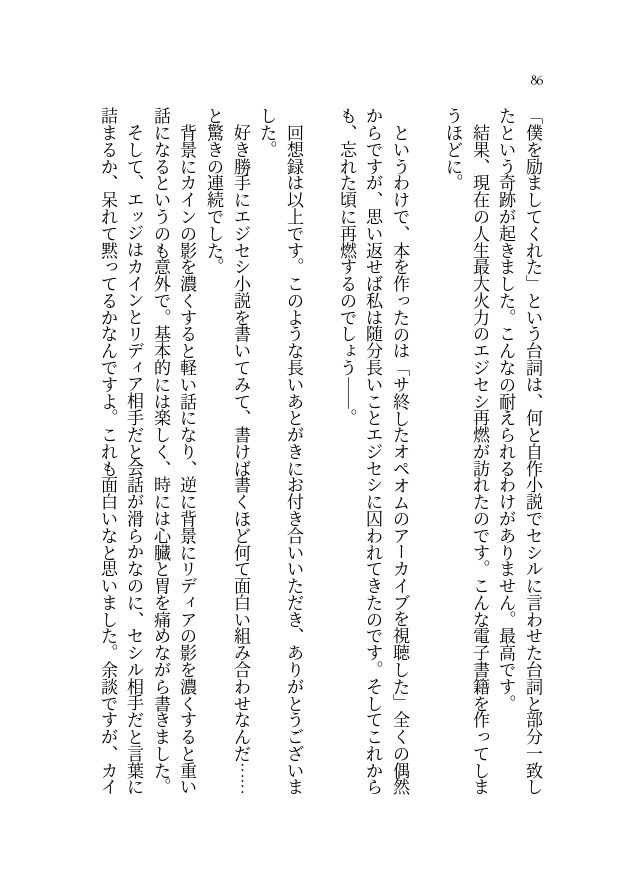 86
「僕を励ましてくれた」という台詞は、何と自作小説でセシルに言わせた台詞と部分一致し
たという奇跡が起きました。こんなの耐えられるわけがありません。最高です。
結果、現在の人生最大火力のエジセシ再燃が訪れたのです。こんな電子書籍を作ってしま
うほどに。
というわけで、本を作ったのは「サ終したオペオムのアーカイブを視聴した」全くの偶然
からですが、思い返せば私は随分長いことエジセシに囚われてきたのです。そしてこれから
も、忘れた頃に再燃するのでしょう――。
回想録は以上です。このような長いあとがきにお付き合いいただき、ありがとうございま
した。
好き勝手にエジセシ小説を書いてみて、書けば書くほど何て面白い組み合わせなんだ……
と驚きの連続でした。
背景にカインの影を濃くすると軽い話になり、逆に背景にリディアの影を濃くすると重い
話になるというのも意外で。基本的には楽しく、時には心臓と胃を痛めながら書きました。
そして、エッジはカインとリディア相手だと会話が滑らかなのに、セシル相手だと言葉に
詰まるか、呆れて黙ってるかなんですよ。これも面白いなと思いました。余談ですが、カイ